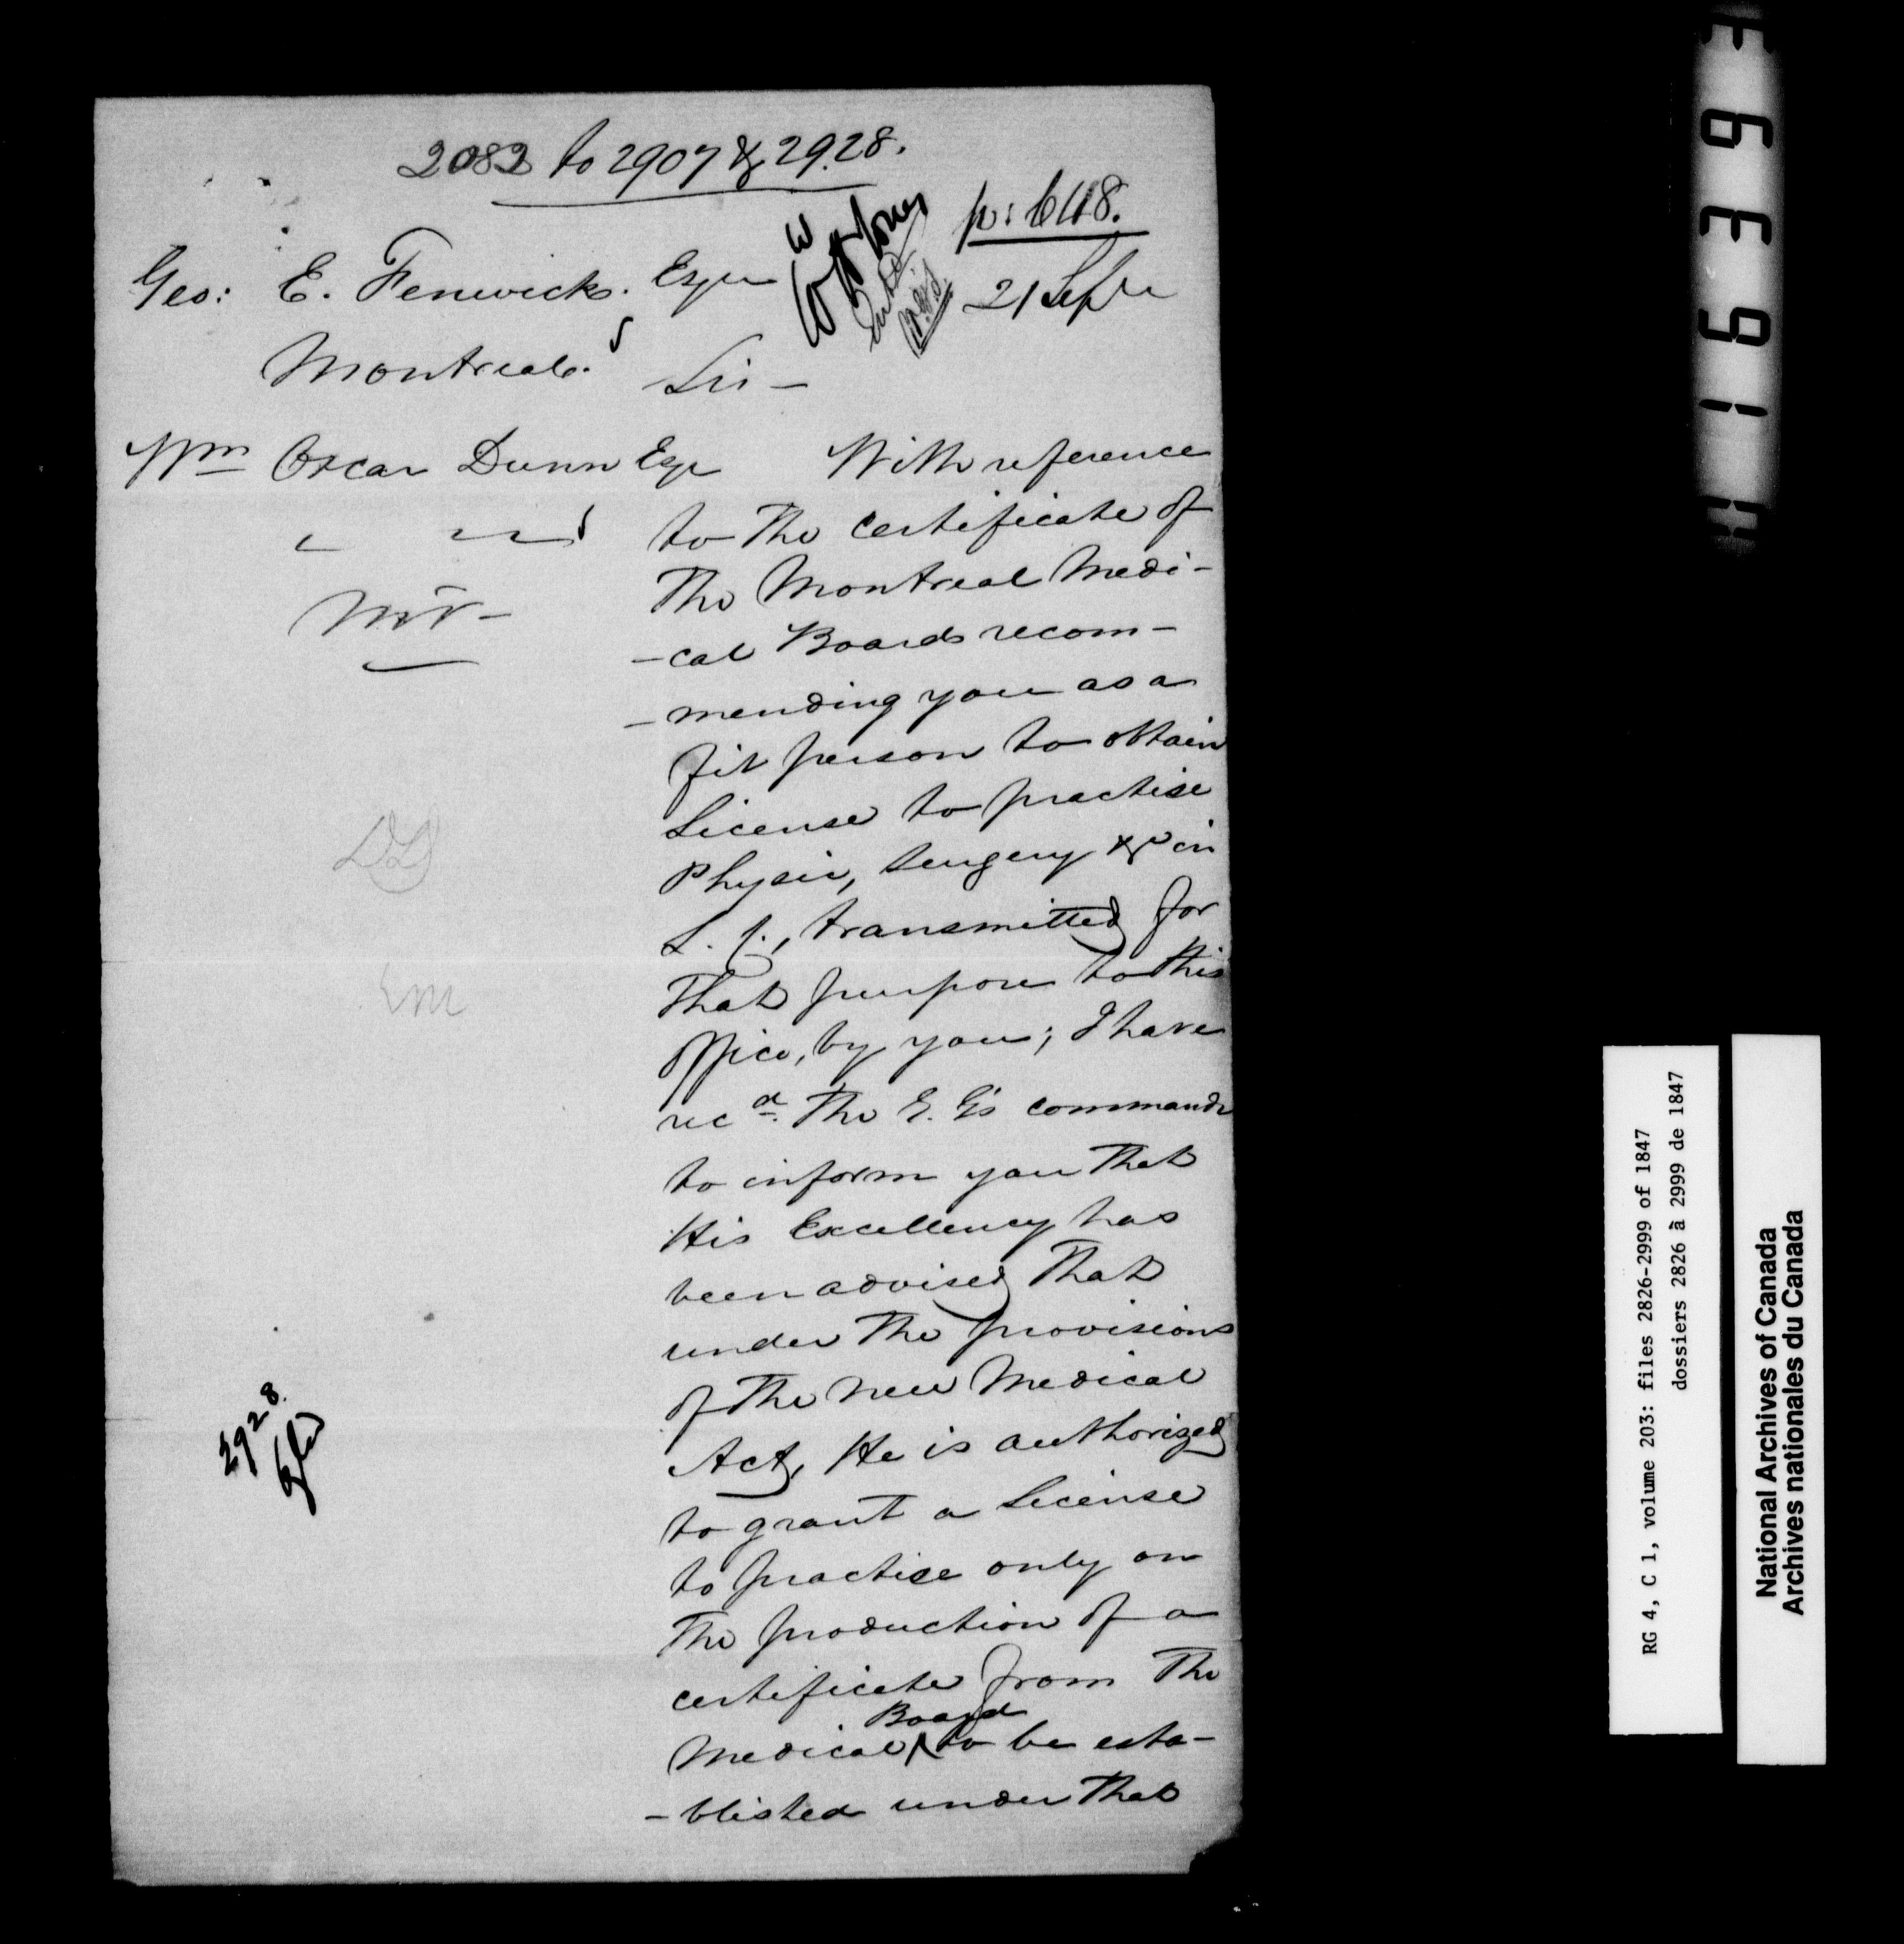 2082 to 2907 & 2928.
p: 648.
Geo: E. Fenwick. Esqr
21 Septr
Montreal.
Sir -
Wm Oscar Dunn Esqr
With reference
to the certificate of
the Montreal Medi-
-cal Board recom-
-mending you as a
fit person to obtain
License to practise
Physic, Surgery &c in
L. C., transmitted for
that purpose to this
Office, by you; I have
recd. the G. G's commands
to inform you that
His Excellency has
been advised that
under the provisions
of the new Medical
Act, He is authorized
to grant a License
to practise only on
the production of a
certificate from the
Board
Medical to be esta-
-blished under that
2928.
H 1693693
RG 4, C 1, volume 203: files 2826-2999 of 1847
dossiers 2826 à 2999 de 1847
National Archives of Canada
Archives nationales du Canada